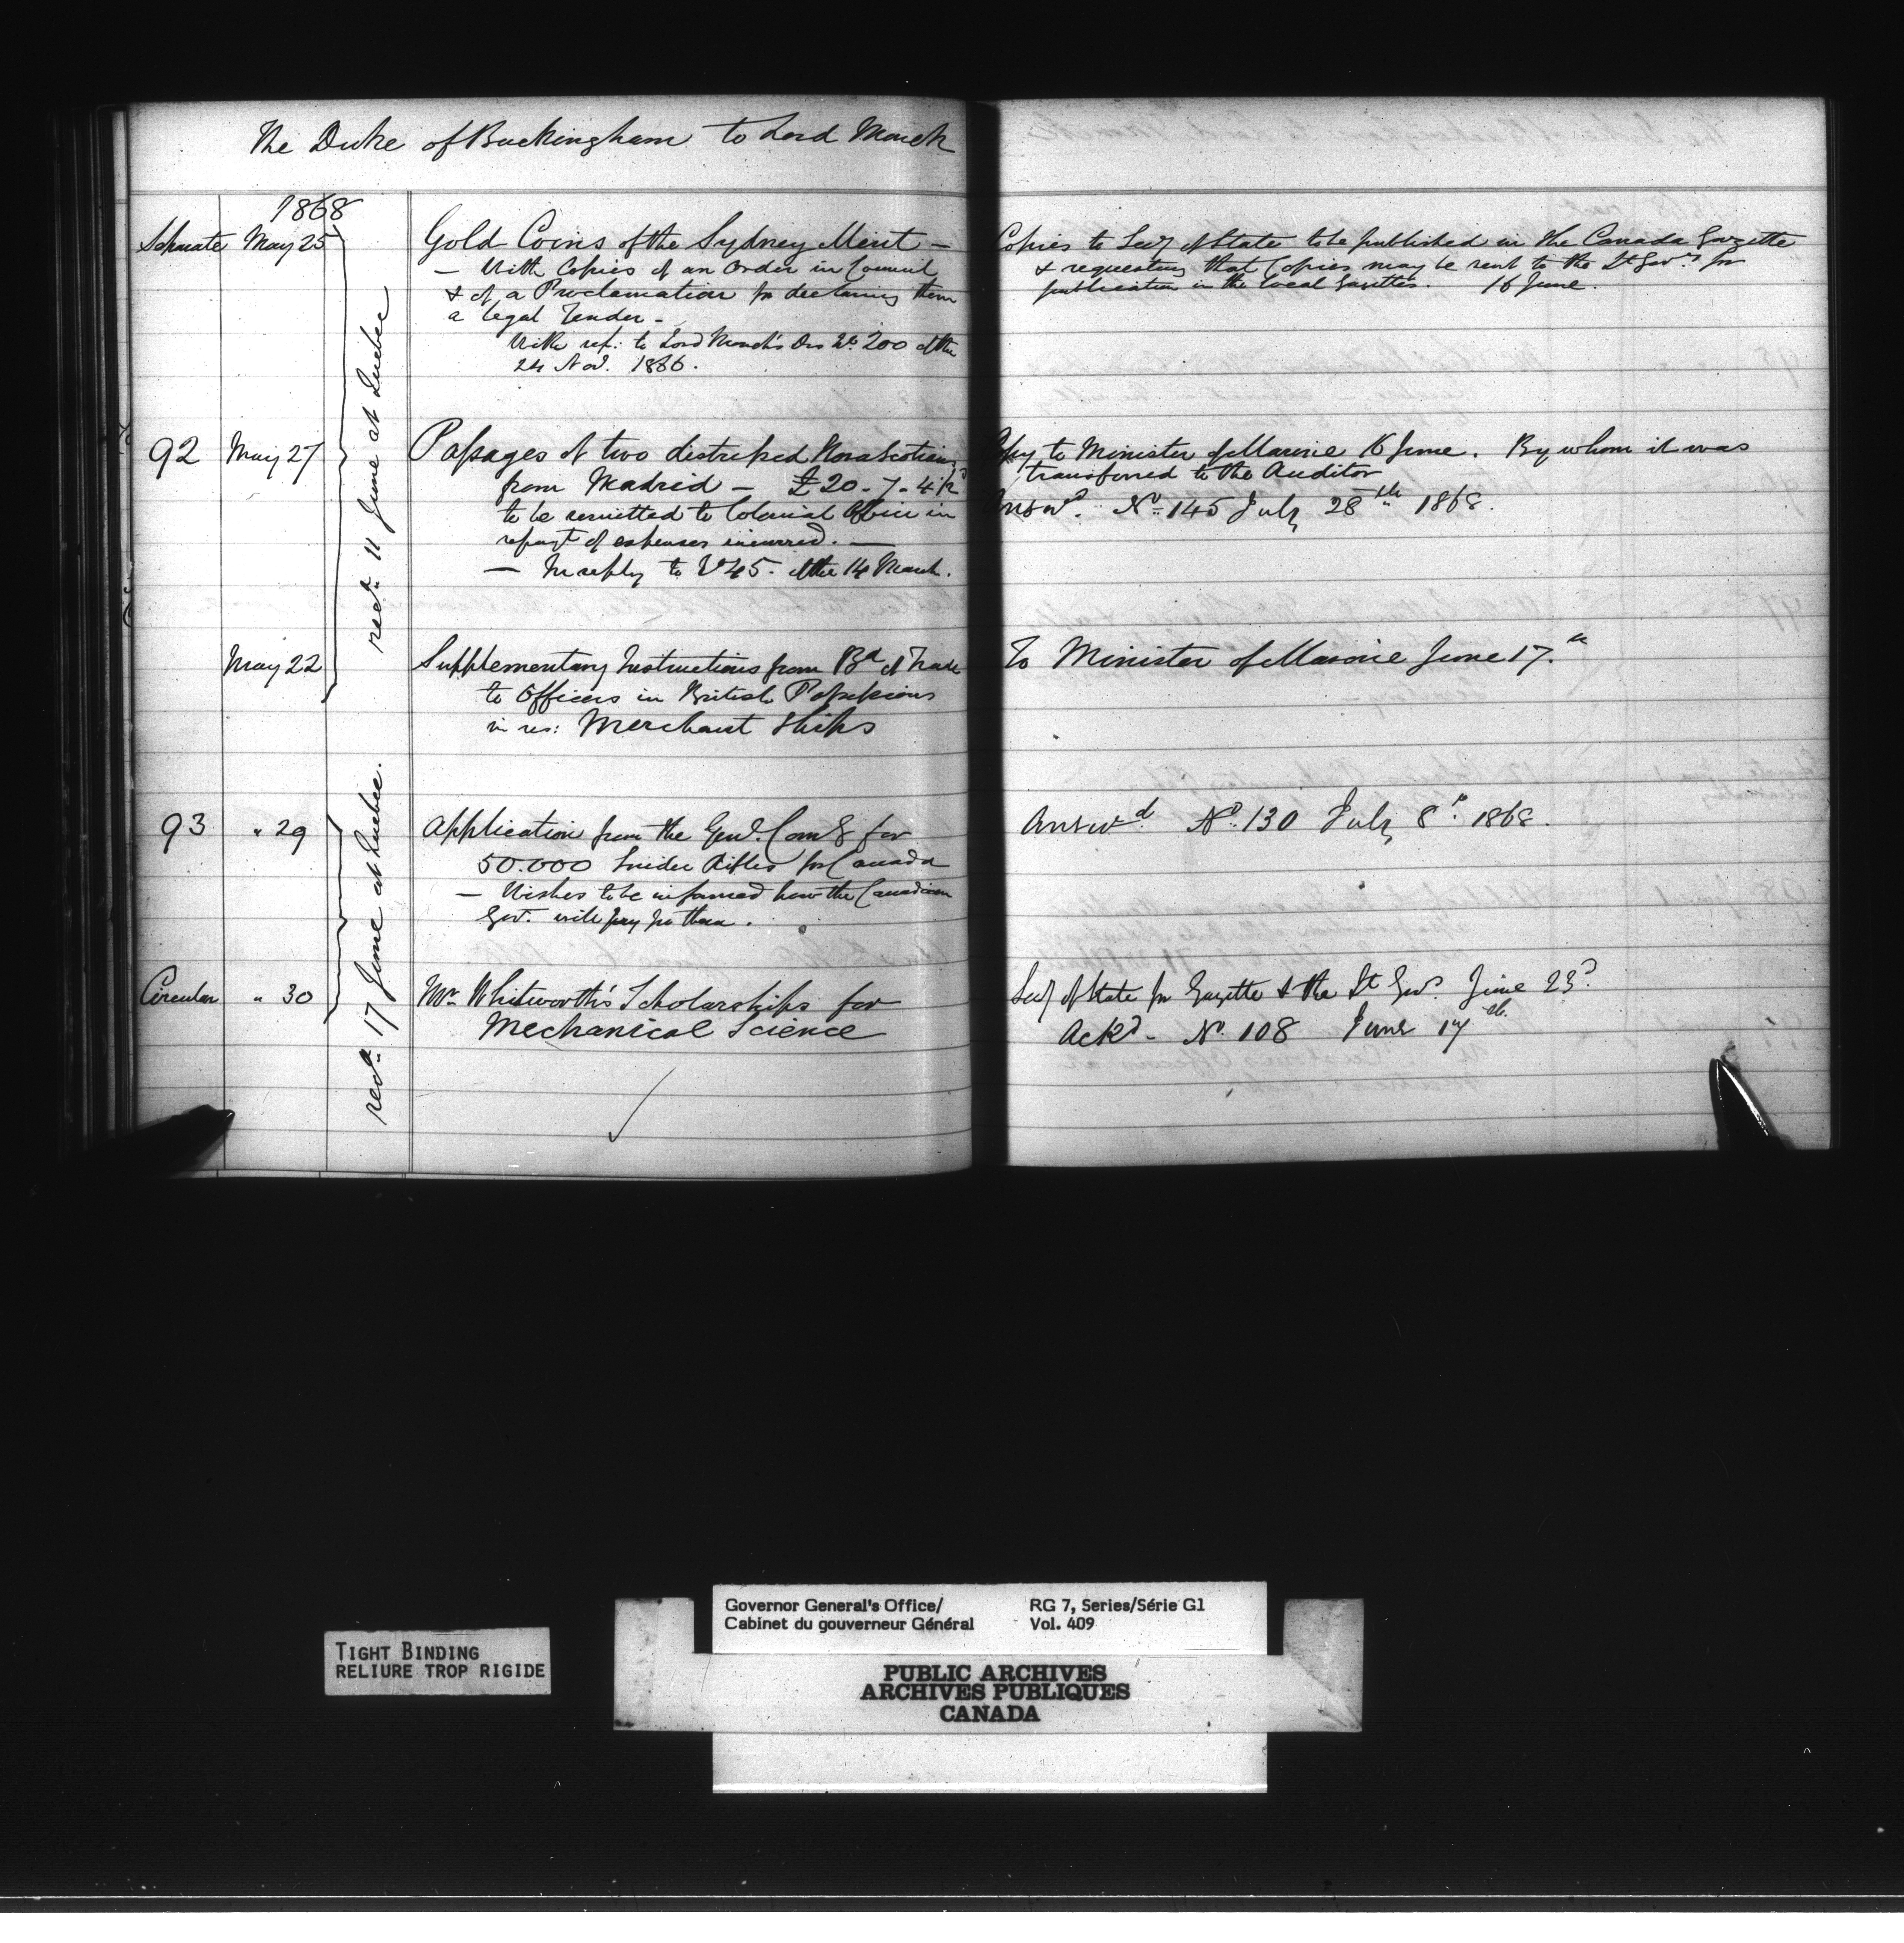 The Duke of Buckingham to Lord Monck
1868
Separate May 25
Gold Coins of the Sydney Mint -
- With Copies of an Order in Council
& of a Proclamation for declaring them
a legal Tender -
With ref: to Lord Monck's Des No 200 of the
24 Nov. 1866.
Copies to Secy of State to be published in the Canada Gazette
& requesting that Copies may be sent to the Lt Govrs for
publication in the local Gazettes. 16 June.
recd 11 June at Quebec
92 May 27
Passages of two distressed Nova Scotians
from Madrid - £20-7-4½
to be remitted to Colonial Office in
repayt of expenses incurred. -
- In reply to No 45. of the 14 March.
Copy to Minister of Marine 16 June. By whom it was
transferred to the Auditor
Answd. No 145 July 28th 1868.
May 22
Supplementary Instructions from Bd of Trade
to Officers in British Possessions
in res: Merchant Ships
To Minister of Marine June 17.th
recd 17 June at Quebec.
93 " 29
Application from the Genl. Comg for
50.000 Snider Rifles for Canada
- Wishes to be informed how the Canadian
Govt. will pay for them.
Answd. No. 130 July 8th 1868.
Circular " 30
Mr Whitworth's Scholarships for
Mechanical Science
Secy of State for Gazette & the Lt Govs. June 23d.
Ackd - No. 108 June 17th.
TIGHT BINDING
RELIURE TROP RIGIDE
Governor General's Office/
Cabinet du gouverneur Général
RG 7, Series/Série G1
Vol. 409
PUBLIC ARCHIVES
ARCHIVES PUBLIQUES
CANADA